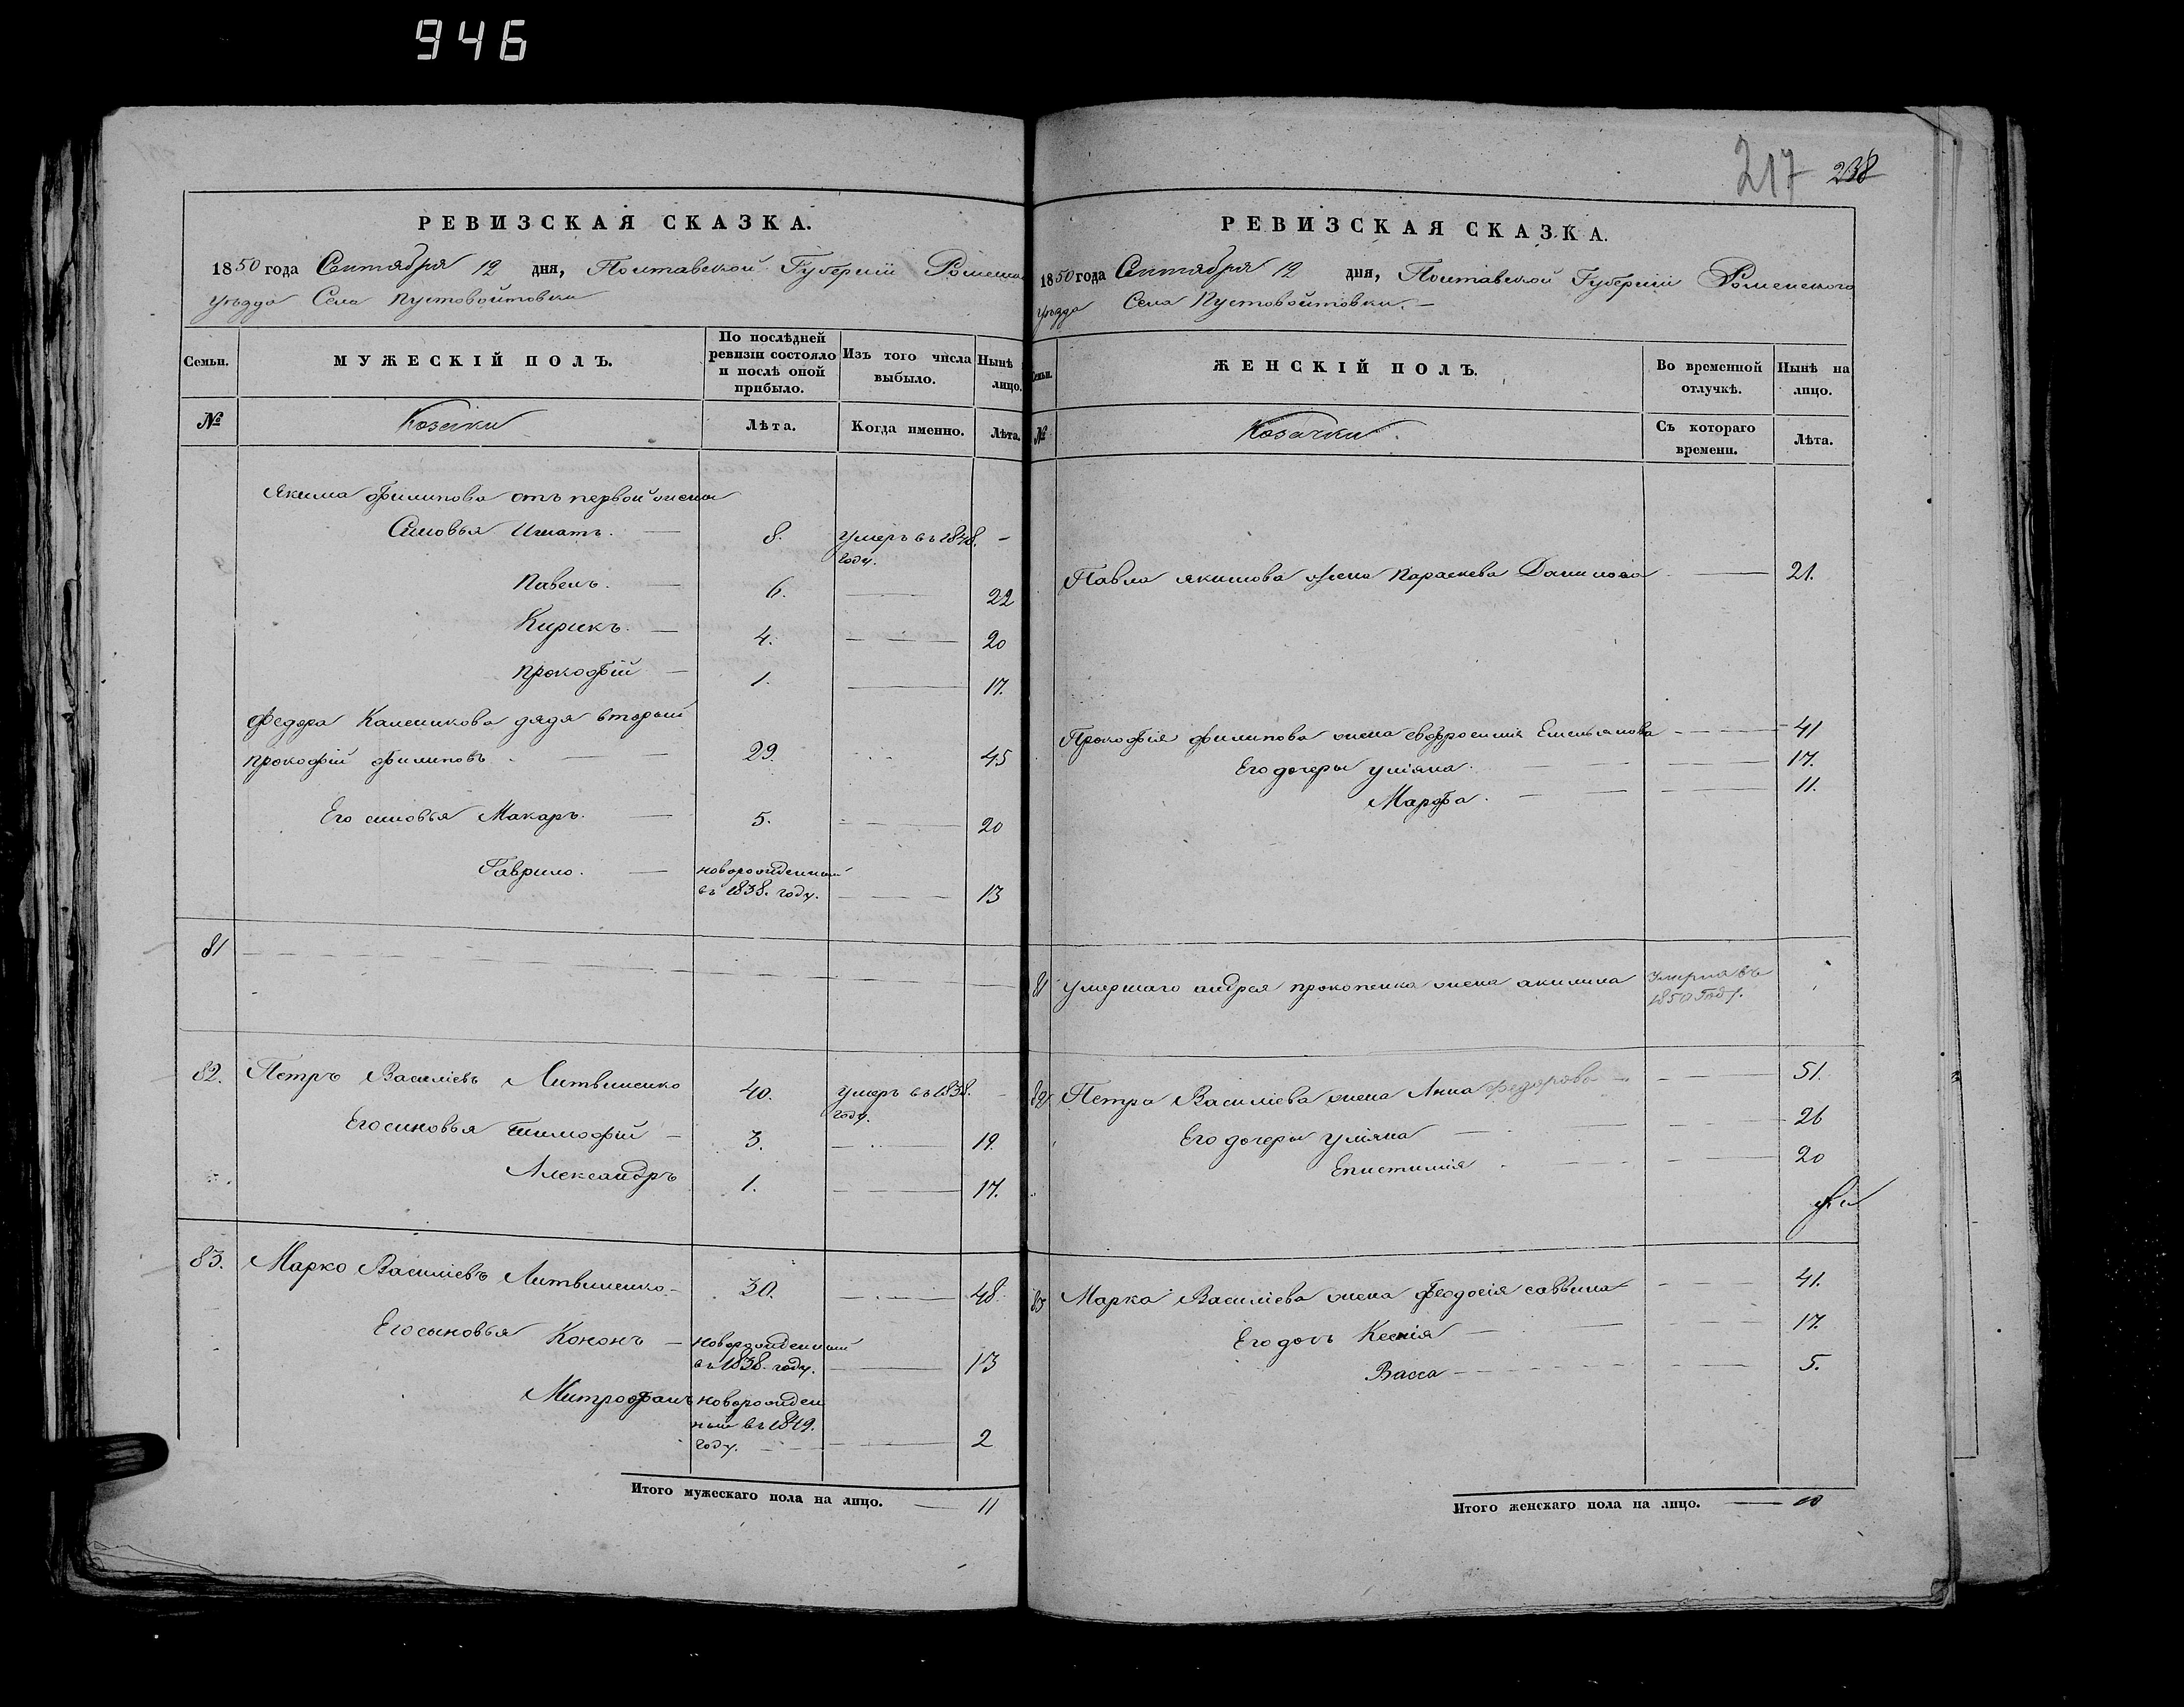 946
РЕВИЗСКАЯ СКАЗКА.
1850 года Сентября 12 дня, Полтавской Губерніи Роменскаго
уѣзда Села Пустовойтовки
Семьи.
МУЖЕСКІЙ ПОЛЪ.
По послѣдней ревизіи состояло и послѣ оной прибыло.
Изъ того числа выбыло.
Нынѣ лицо.
№
Козаки
Лѣта.
Когда именно.
Лѣта.
Якима Филипова отъ первой жены
Синовья Игнатъ. 8. умеръ въ 1848. году. -
Павелъ. 6. 22
Кирикъ. 4. 20
Прокофій 1. 17.
Федора Каленикова дядя вторый
Прокофій Филиповъ. 29. 45
Его синовья Макаръ. 5. 20
Гаврило. новорожденный въ 1838. году. 13
81
82. Петръ Василіевъ Литвиненко 40. умеръ въ 1838. году. -
Его синовья Тимофій 3. 19.
Александръ 1. 17.
83. Марко Василіевъ Литвиненко 30. 48.
Его сыновья Кононъ новорожденный въ 1838. году. 13
Митрофанъ новорожден
ный въ 1849.
году. 2
Итого мужескаго пола на лицо. 11
217 238
РЕВИЗСКАЯ СКАЗКА.
1850 года Сентября 12 дня, Полтавской Губерніи Роменского
уѣзда Села Пустовойтовки.
Семьи.
ЖЕНСКІЙ ПОЛЪ.
Во временной отлучкѣ.
Нынѣ на лицо.
№
Козачки.
Съ котораго времени.
Лѣта.
Павла Якимова жена Параскева Данилова 21.
Прокофія Филипова жена Евфросинія Емельянова 41
Его дочери Уліяна. 17.
Марфа. 11.
81 Умершаго Андрея Прокопенка жена Акилина умерла въ
1850 Году.
82 Петра Василіева жена Анна Федорова 51.
Его дочери Уліяна 26
Епистимія 20
83 Марка Василіева жена Феодосія Саввина 41.
Его дочь Ксенія 17.
Васса 5.
Итого женскаго пола на лицо. 10